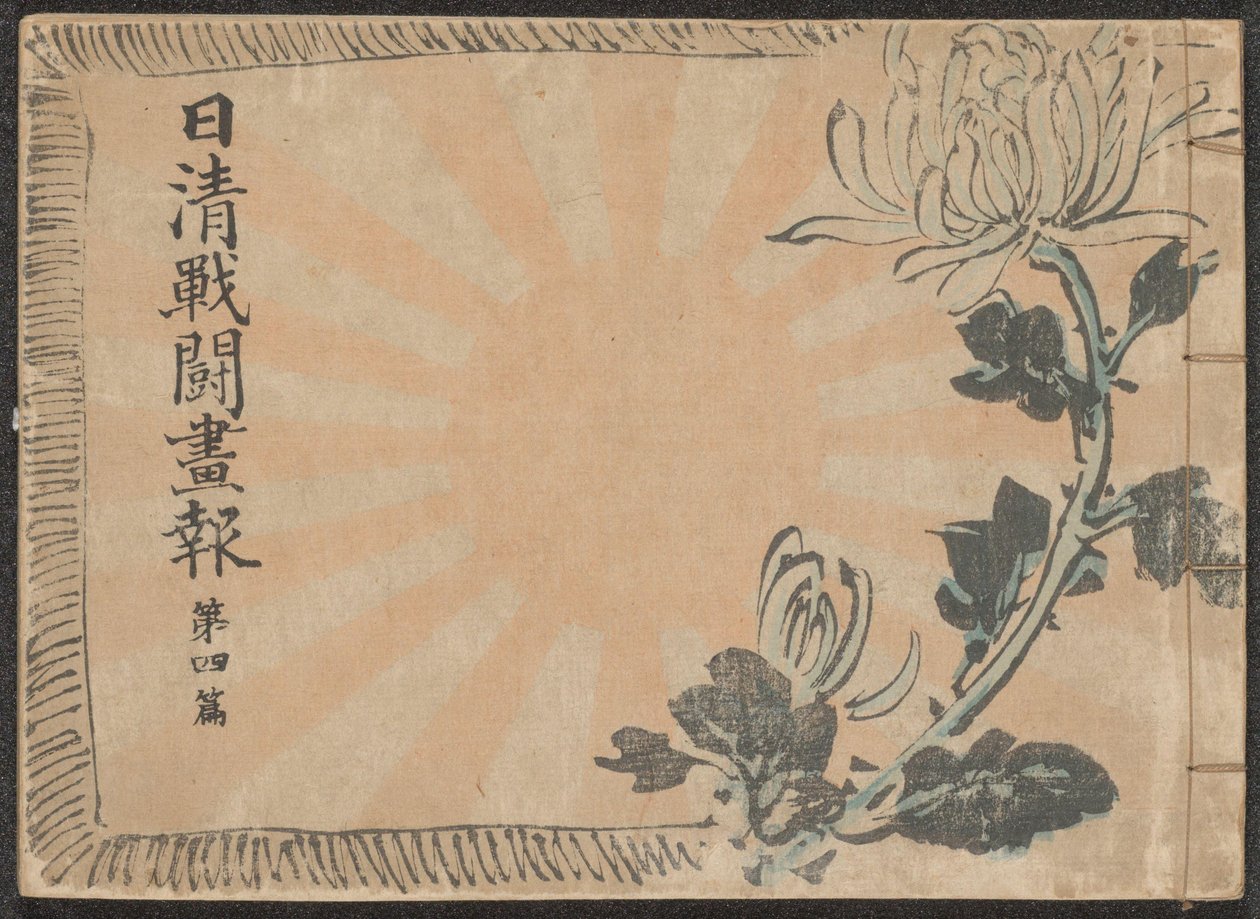 日清戰鬪畫報 第四篇